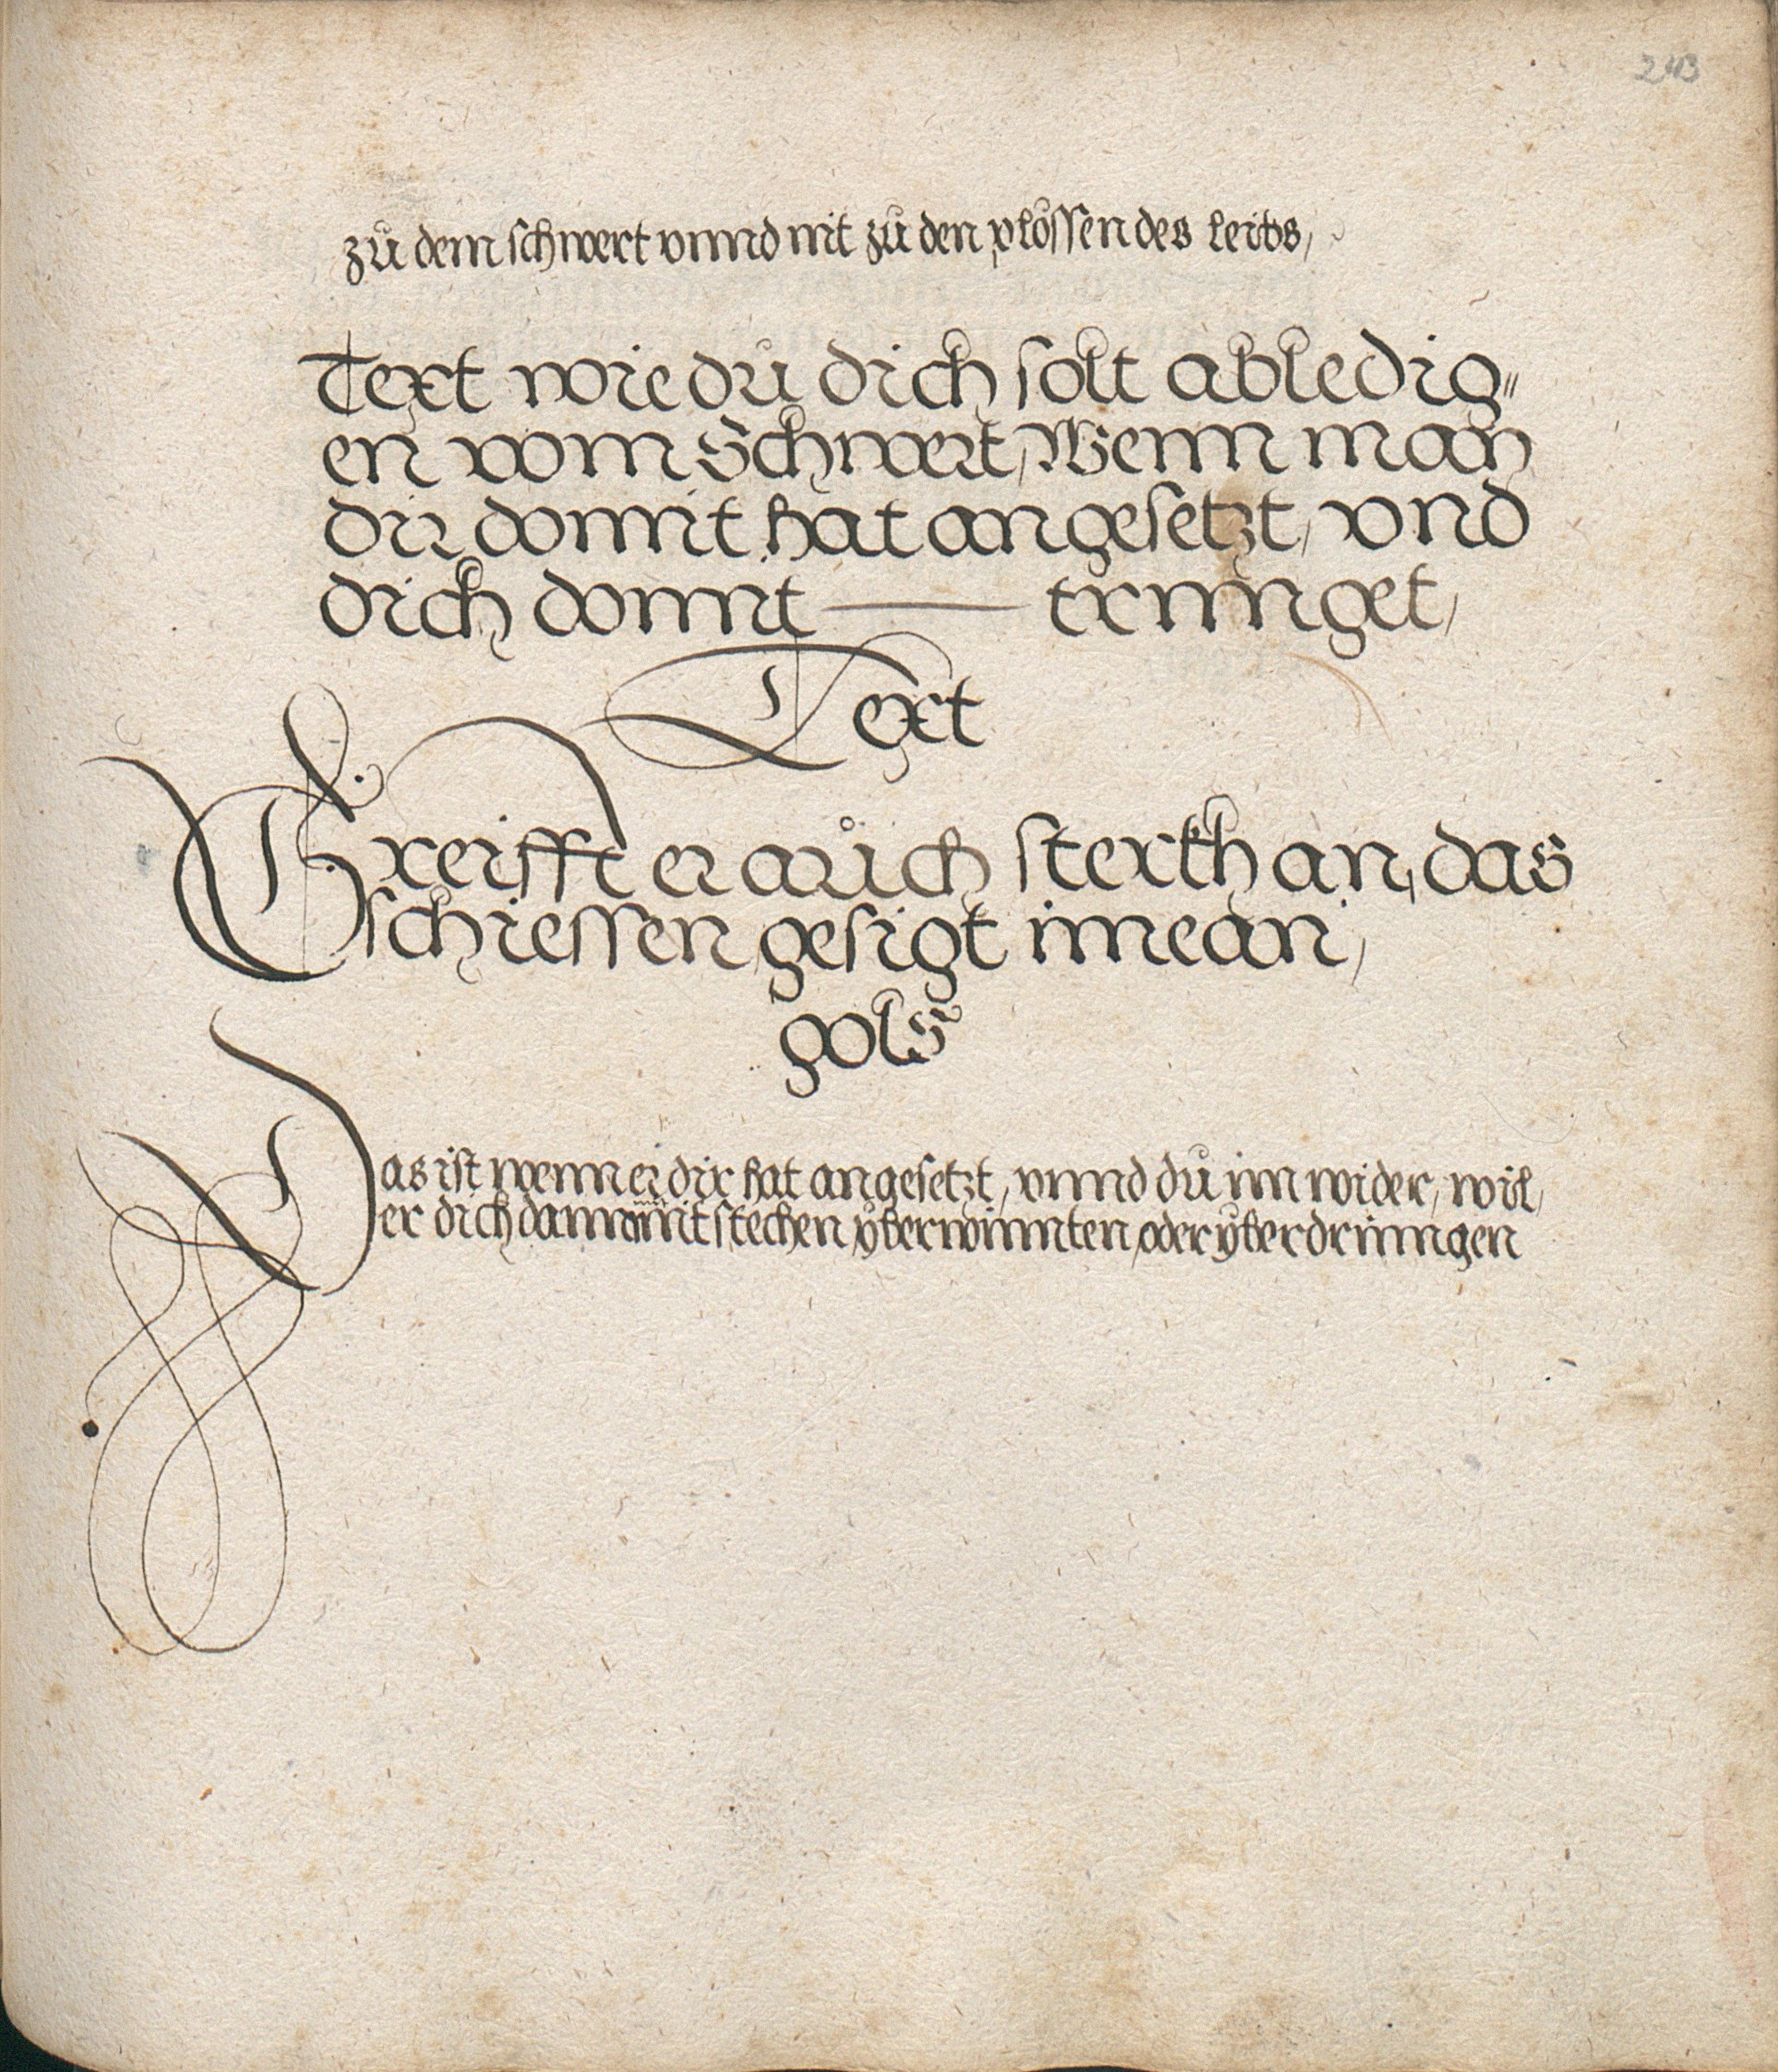 243
zů dem schwert vnnd nit zů den plo̊ssen des leibs,
Text wie dů dich solt abledig=
en vom Schwert, Wenn man
dir domit hat angesetzt, vnd
dich domit — trinnget,
Text
Greifft er aůch sterkh an, das
schiessen gesigt ime an,
Glos
Das ist wenn er dir hat angesetzt, vnnd dů im wider, wil,
er dich dann mit stechen yberwinnten, oder yberdrinngen